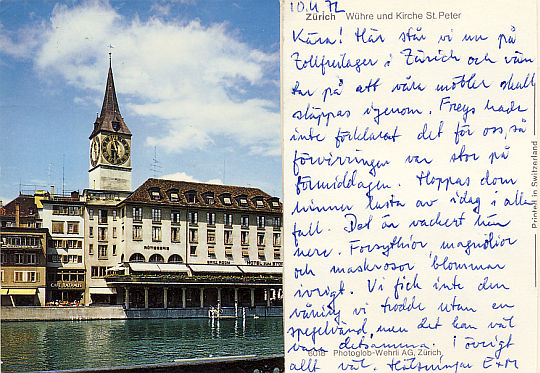 10.4.72
Zürich Wühre und Kirche St. Peter
Kära! Här står vi nu på
Zollfreilager i Zürich och vän
tar på att våra möbler skall
släppas igenom. Freys hade
inte förklarat det för oss, så
förvirringen var stor på
förmiddagen. Hoppas dom
hinner lasta av idag i alla
fall. Det är vackert här
nere. Forsythior magnolior
och maskrosor blommar
ivrigt. Vi fick inte den
våning vi trodde utan en
spegelvänd, men det kan väl
vara detsamma. I övrigt
6016 Photoglob-Wehrli AG, Zürich
allt väl. Hälsningar E+M
Printed in Switzerland
HOTEL ZUM STO